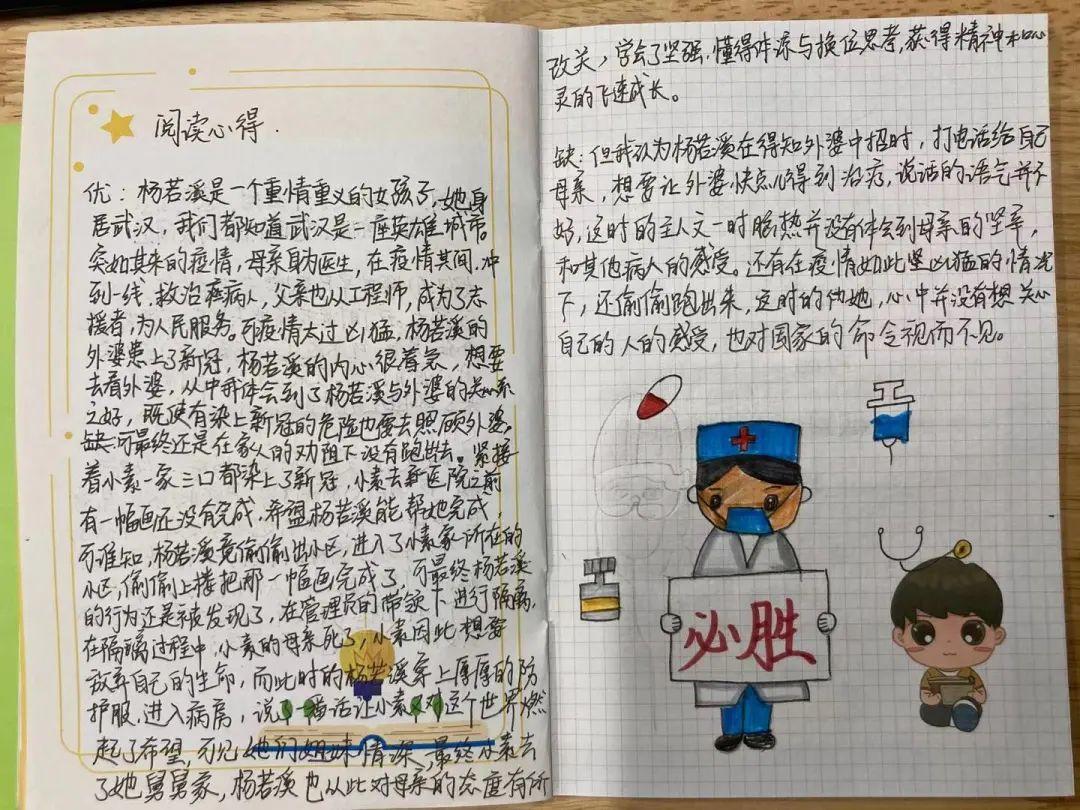 阅读心得.
优：杨若溪是一个重情重义的女孩子，她身
居武汉，我们都知道武汉是一座英雄城市。
突如其来的疫情，母亲身为医生，在疫情其间，冲
到一线，救治病人，父亲也从工程师，成为了志
援者，为人民服务。可疫情太过凶猛，杨若溪的
外婆患上了新冠，杨若溪的内心很着急，想要
去看外婆，从中我体会到了杨若溪与外婆的关系
之好，既使有染上新冠的危险也要去照顾外婆。
缺：可最终还是在家人的劝阻下没有跑出去。紧接
着小素一家三口都染上了新冠，小素去新医院之前
有一幅画还没有完成，希望杨若溪能帮她完成，
可谁知，杨若溪竟偷偷出小区，进入了小素家所在的
小区，偷偷上楼把那一幅画完成了，可最终杨若溪
的行为还是被发现了，在管理员的带领下进行隔离，
在隔离过程中，小素的母亲死了，小素因此想要
放弃自己的生命，而此时的杨若溪穿上厚厚的防
护服，进入病房，说了一番话让小素又对这个世界燃
起了希望，可见她们姐妹情深，最终小素去
了她舅舅家，杨若溪也从此对母亲的态度有所
改关，学会了坚强，懂得体谅与换位思考，获得精神和心
灵的飞速成长。
缺：但我认为杨若溪在得知外婆中招时，打电话给自己
母亲，想要让外婆快点儿得到治疗，说话的语气并不
好，这时的主人文一时脑热并没有体会到母亲的坚辛，
和其他病人的感受。还有在疫情如此凶猛的情况
下，还偷偷跑出来，这时的她，心中并没有想关心
自己的人的感受，也对国家的命令视而不见。
必胜